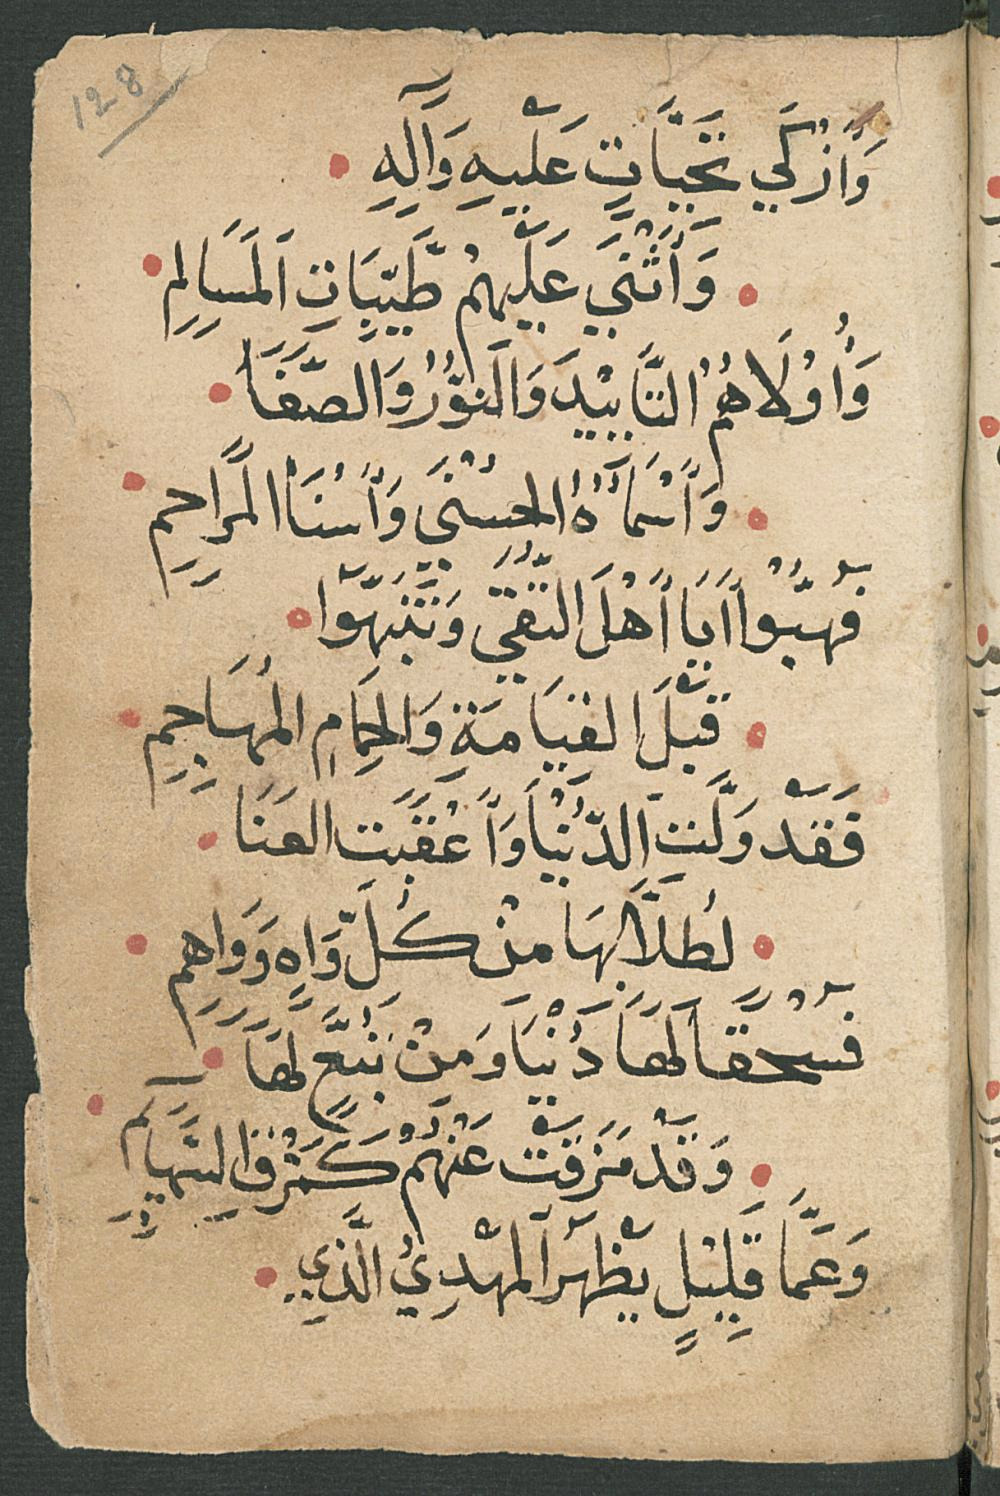 128
وَأَزْكَي تَحِيَّاتٍ عَلَيْهِ وَآلِهِ
وَأَثْنَي عَلَيْهِمْ طَيِّبَاتِ اَلْمَسَالِمِ
وَأُوْلَاهُمُ التَّابِيْدَ وَالنُّوْرُ وَالصَّفَا
وَأَسْمَآءُهُ الْحُسْنَي وَأَسْنَا الْمَرَاحِمِ
فَهُبُّوْا اَيَا أَهْلَ التُّقَي وَتَنَبَّهُوْا
قَبْلَ الْقِيَامَةِ وَالْحِمَامِ الْمُهَاجِمِ
فَقَدْ وَلَّتِ الدُّنْيَا وَأَعْقَبَتِ الْعَنَا
لِطُلَّابِهَا مِنْ كُلِّ وَاهٍ وَوَاهِمِ
فَسُحْقًا لَهَا دُنْيَا وَمَنْ يَتَّبِعْ لَهَا
وَقَدْ مَزَقَتْ عَنْهُمْ كَمَزْقِ السَّهَآئِمِ
وَعَمَّا قَلِيْلٍ يَظْهَرُ اَلْمَهْدِيُّ الَّذِي